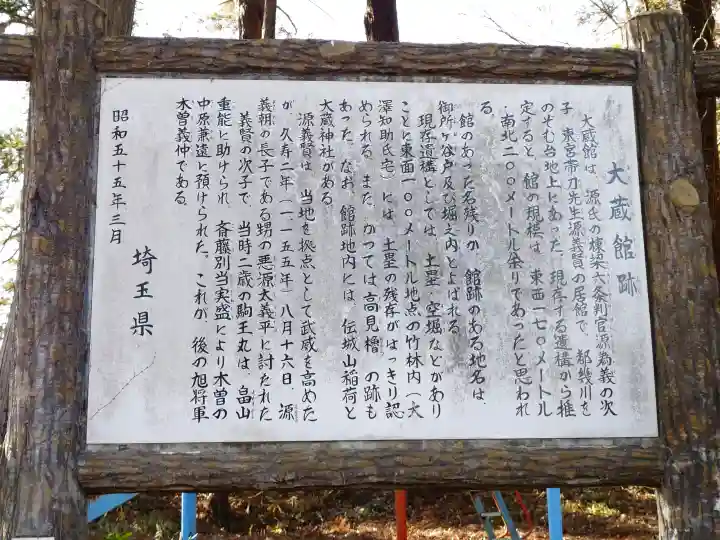 大蔵館跡
大蔵館は、源氏の棟梁六条判官源為義の次
子、東宮帯刀先生源義賢の居館で、都幾川を
のぞむ台地上にあった。現存する遺構から推
定すると、館の規模は、東西一七〇メートル
・南北二〇〇メートル余りであったと思われ
る。
館のあった名残りか、館跡のある地名は、
御所ヶ谷戸及び堀之内とよばれる。
現存遺構としては、土塁・空堀などがあり
ことに東面一〇〇メートル地点の竹林内（大
澤知助氏宅）には、土塁の残存がはっきり認
められる。また、かつては高見櫓の跡も
あった。なお、館跡地内には、伝城山稲荷と
大蔵神社がある。
源義賢は、当地を拠点として武威を高めた
が、久寿二年（一一五五年）八月十六日、源
義朝の長子である甥の悪源太義平に討たれた
義賢の次子で、当時二歳の駒王丸は、畠山
重能に助けられ、斎藤別当実盛により木曽の
中原兼遠に預けられた。これが、後の旭将軍
木曽義仲である。
昭和五十五年三月
埼玉県